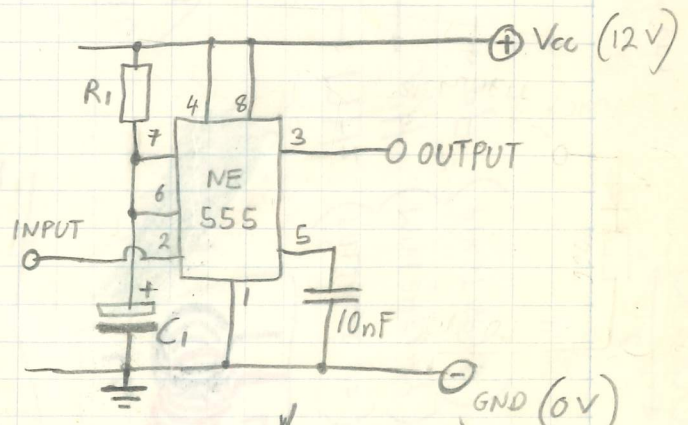 + Vcc (12V)
R1
4 8
7
3
OUTPUT
NE
555
6
INPUT
2
5
+
1
C1
10nF
-
GND (0V)